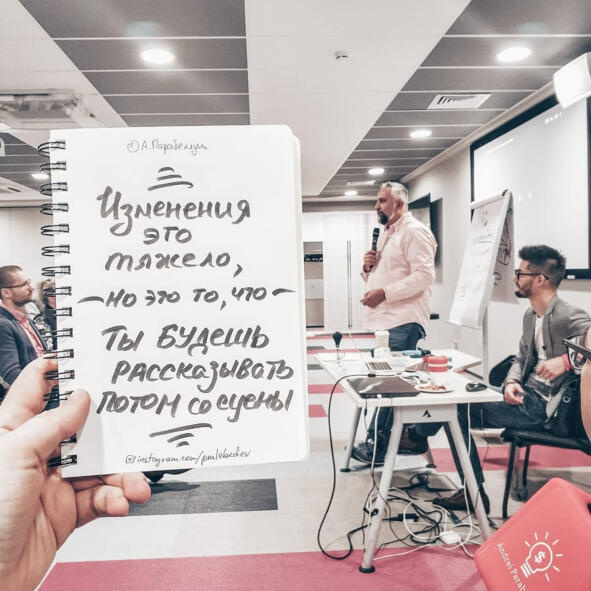 ©А.Парабеллум
Изменения
это
тяжело,
но это то, что
ты будешь
рассказывать
потом со сцены
instagram.com/pmlebedev
Andrei Parab